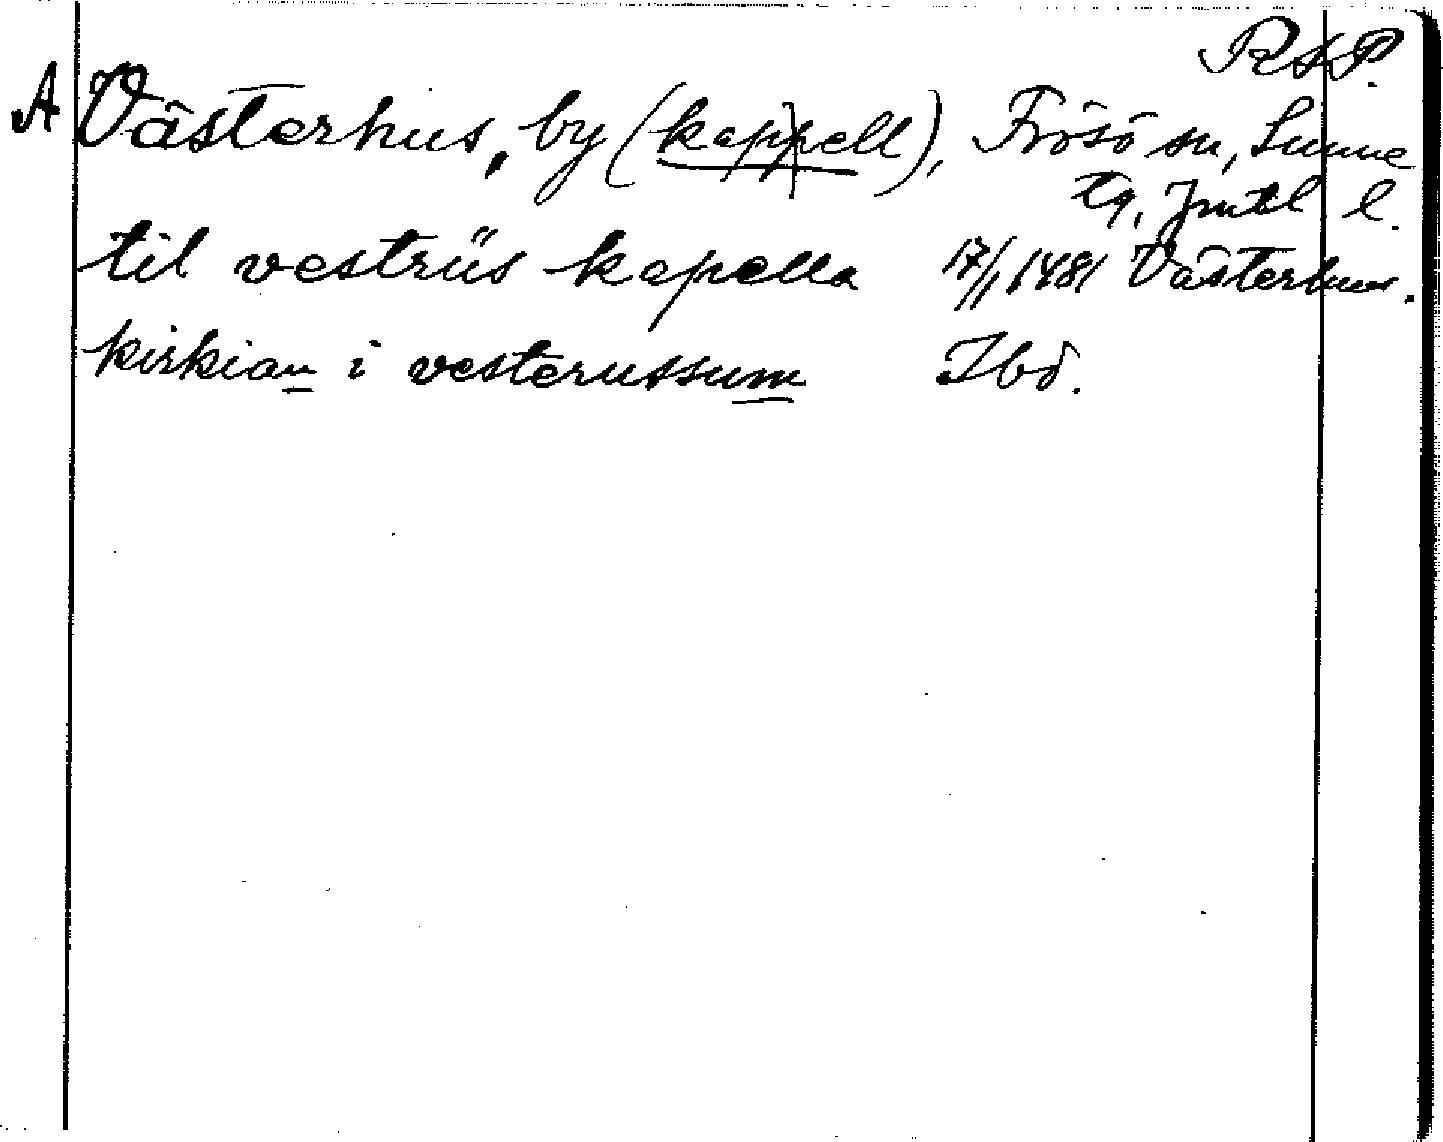 RAP.
A Västerhus, by (kappell), Frösö sn, Sunne
tg, Jmtl l.
til vestrüs kapella 17/1 1481 Västerhus.
kirkian i vesterussum Ibd.